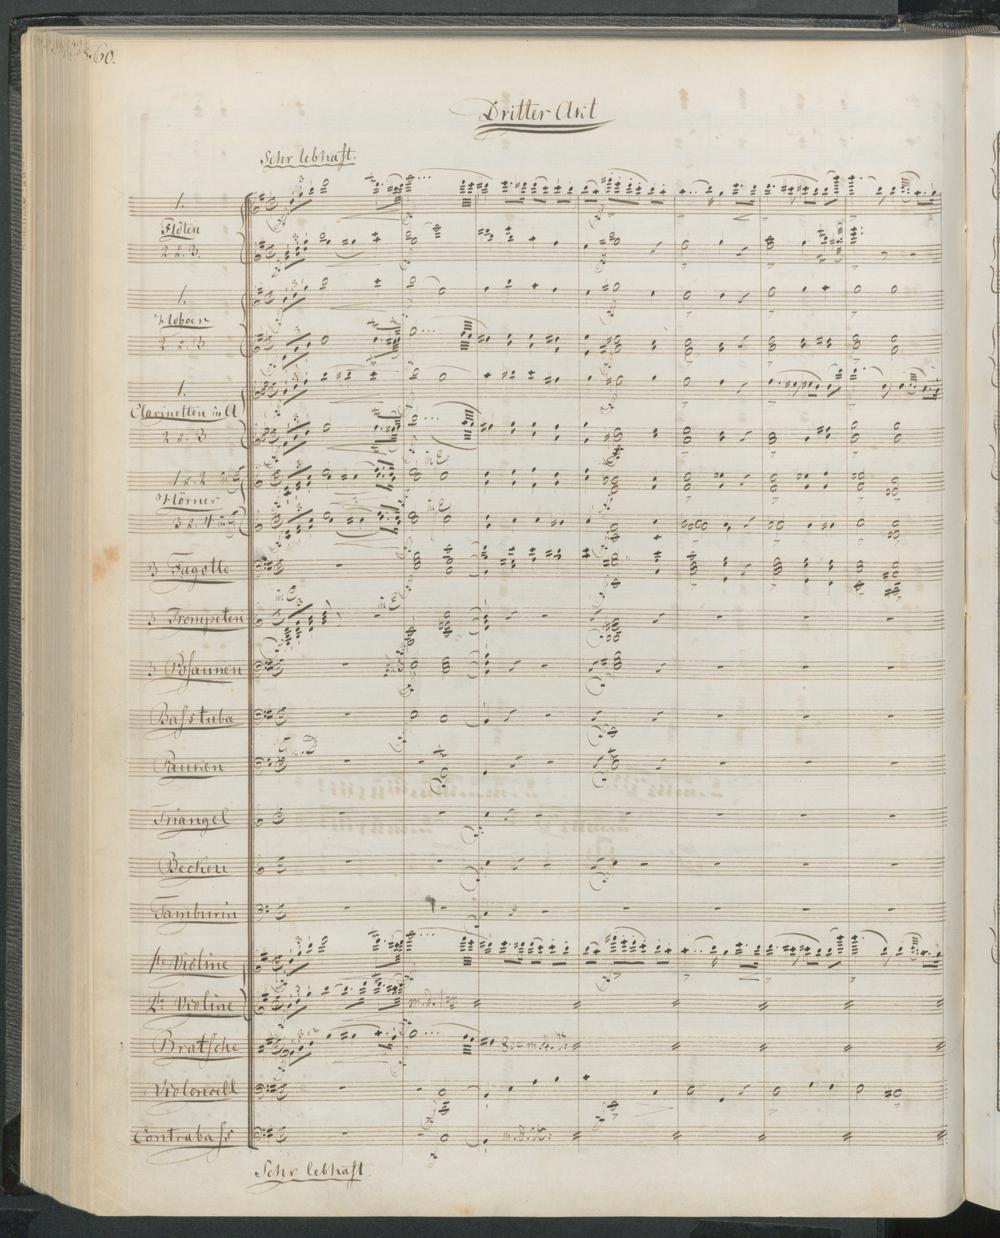 60.
Dritter Akt
Sehr lebhaft.
1.
Flöten
2 u. 3.
1.
Hoboen
2 u. 3
1.
Clarinetten in A
2 u. 3
in E
1 u. 2 in E
Hörner
in E
3 u. 4 in E
3 Fagotte
in E
in E
3 Trompeten
3 Posaunen
Basstuba
Pauken
Triangel
Becken
Tamburin
1te Violine
2te Violine
Bratsche
Violoncell
Contrabass
Sehr lebhaft.